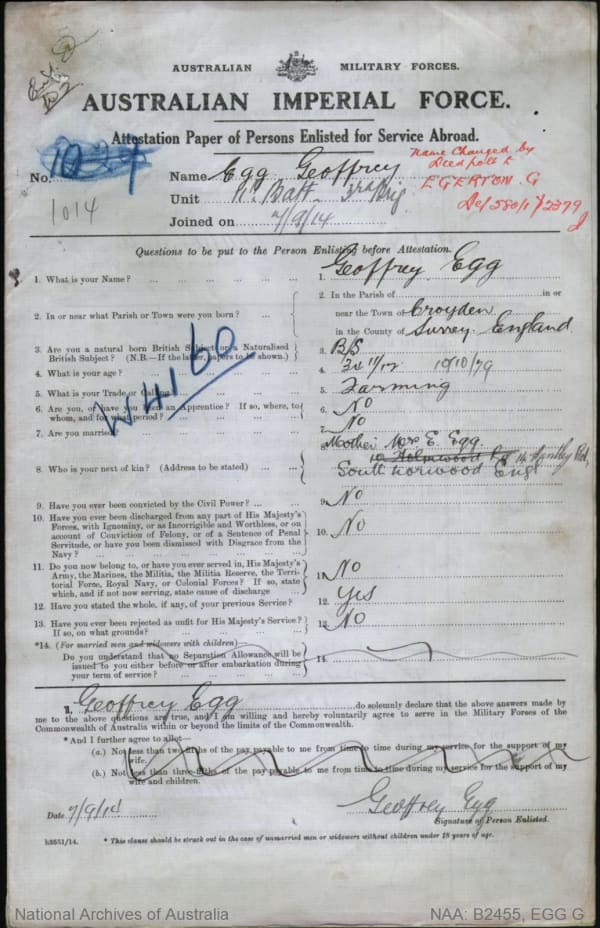 AUSTRALIAN MILITARY FORCES.
AUSTRALIAN IMPERIAL FORCE.
Attestation Paper of Persons Enlisted for Service Abroad.
No. 1014
Name Egg Geoffrey
Unit Batt. 3rd Brig
Joined on 7/9/14
Name Changed by
Deed poll to
EGERTON. G
Questions to be put to the Person Enlisting before Attestation.
1. What is your Name? ... 1. Geoffrey Egg
2. In or near what Parish or Town were you born? ... 2. In the Parish of in or
near the Town of Croyden
in the County of Surrey England
3. Are you a natural born British Subject or a Naturalised
British Subject? (N.B.—If the latter, papers to be shown.) 3. B/S
4. What is your age? ... 4. 34 11/12 1/10/79
5. What is your Trade or Calling? ... 5. Farming
6. Are you, or have you been an Apprentice? If so, where, to
whom, and for what period? ... 6. No
7. Are you married? ... 7. No
8. Who is your next of kin? (Address to be stated) ... 8. Mother Mrs E. Egg
10 Holmwood Rd 14 Rd
South Norwood Eng
9. Have you ever been convicted by the Civil Power? ... 9. No
10. Have you ever been discharged from any part of His Majesty's
Forces, with Ignominy, or as Incorrigible and Worthless, or on
account of Conviction of Felony, or of a Sentence of Penal
Servitude, or have you been dismissed with Disgrace from the
Navy? ... 10. No
11. Do you now belong to, or have you ever served in, His Majesty's
Army, the Marines, the Militia, the Militia Reserve, the Terri-
torial Force, Royal Navy, or Colonial Forces? If so, state
which, and if not now serving, state cause of discharge ... 11. No
12. Have you stated the whole, if any, of your previous Service? 12. Yes
13. Have you ever been rejected as unfit for His Majesty's Service?
If so, on what grounds? ... 13. No
*14. (For married men and widowers with children)
Do you understand that no Separation Allowance will be
issued to you either before or after embarkation during
your term of service? ... 14.
I, Geoffrey Egg do solemnly declare that the above answers made by
me to the above questions are true, and I am willing and hereby voluntarily agree to serve in the Military Forces of the
Commonwealth of Australia within or beyond the limits of the Commonwealth.
* And I further agree to allot—
(a.) Not less than two-fifths of the pay payable to me from time to time during my service for the support of my
wife.
(b.) Not less than three-fifths of the pay payable to me from time to time during my service for the support of my
wife and children.
Date 7/9/14
Geoffrey Egg
Signature of Person Enlisted.
* This clause should be struck out in the case of unmarried men or widowers without children under 18 years of age.
National Archives of Australia
NAA: B2455, EGG G